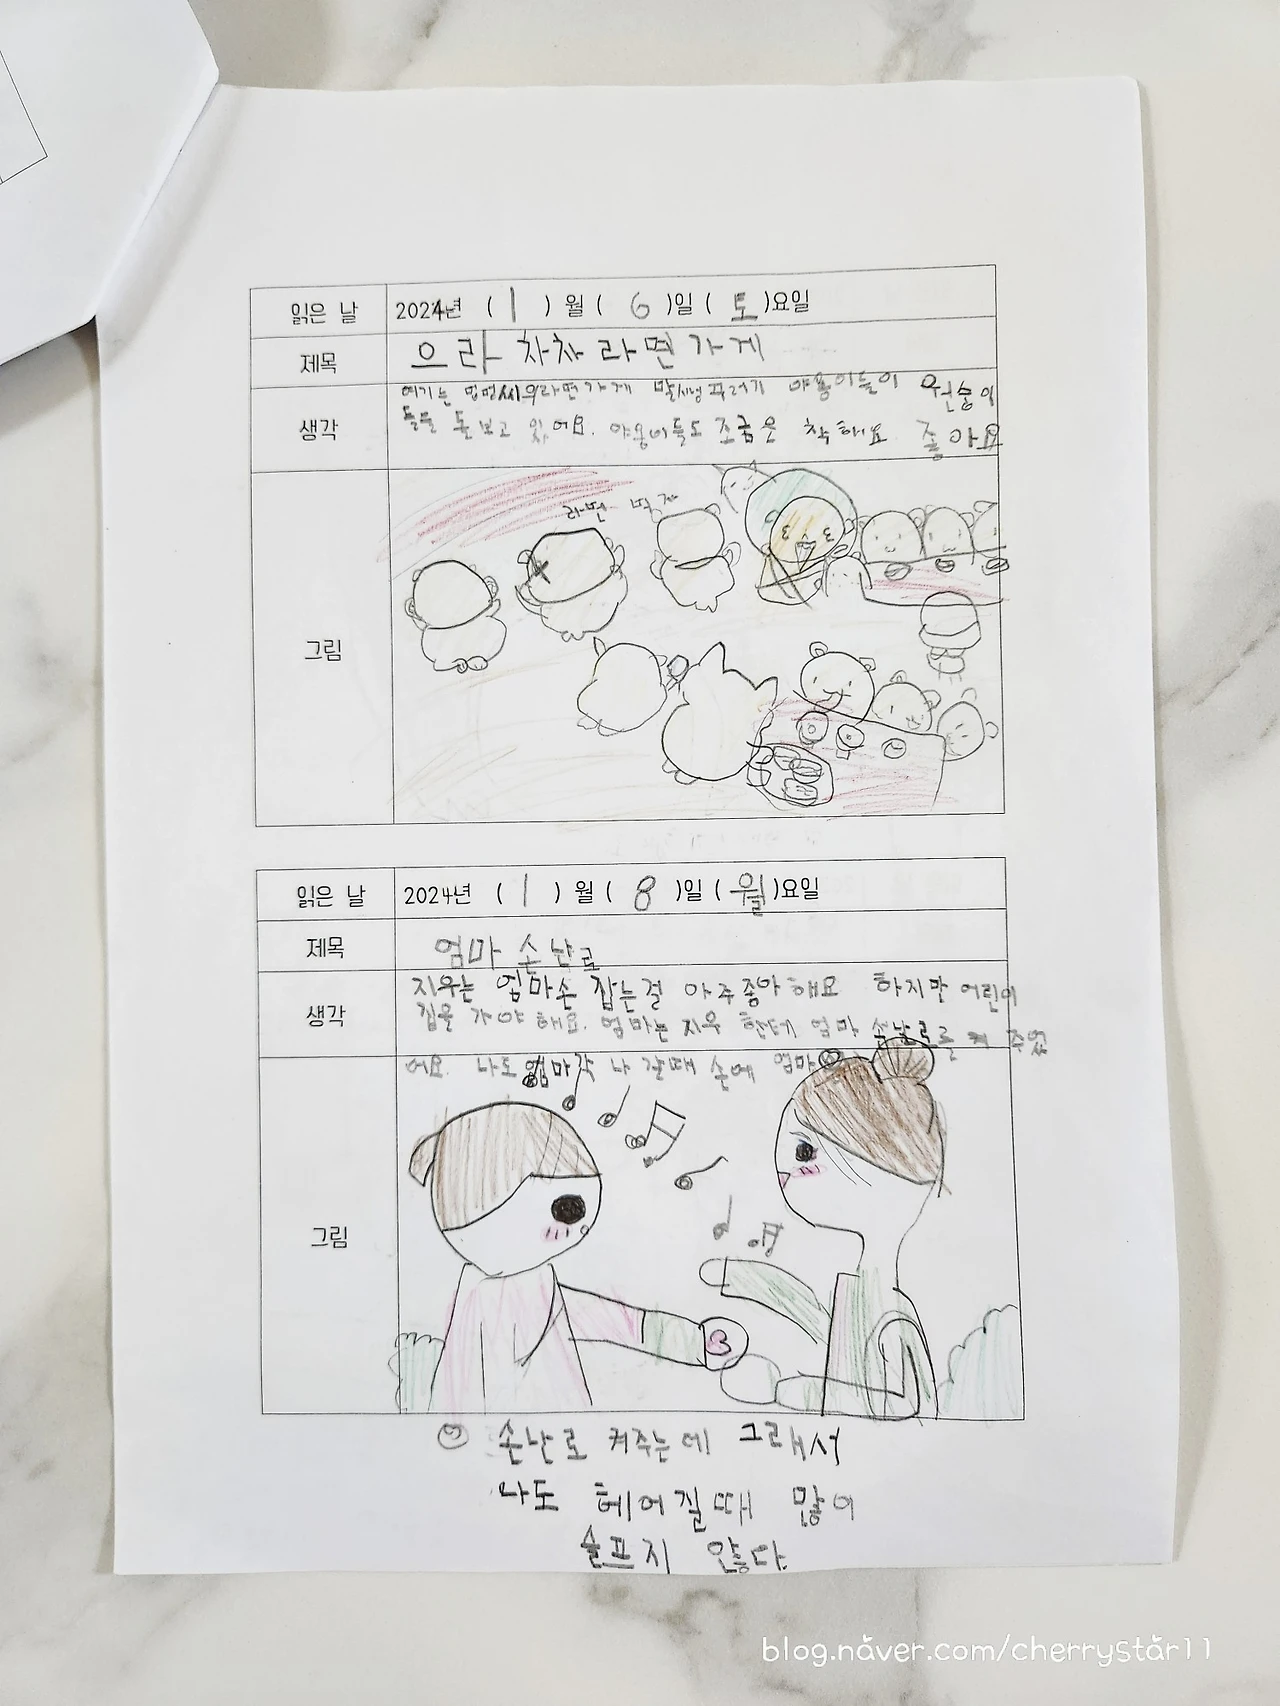 읽은 날 2024년 ( 1 ) 월 ( 6 )일 ( 토 )요일
제목 으라 차차 라면 가게
생각 여기는 멈멈씨의라면가게 야옹이들이 원숭이
들을 돌보고 있어요. 야옹이들도 조금은 착해요 좋아요
그림
라면
읽은 날 2024년 ( 1 ) 월 ( 8 )일 ( 월 )요일
제목 엄마 손난로
생각 지우는 엄마손 잡는걸 아주좋아해요 하지만 어린이
집을 가야 해요. 엄마는 지우 한테 엄마 손난로를 켜 주었
어요. 나도 엄마랑 나 갈때 손에 엄마
그림
손난로 켜주는데 그래서
나도 헤어질때 많이
슬프지 않다
blog.naver.com/cherrystar11